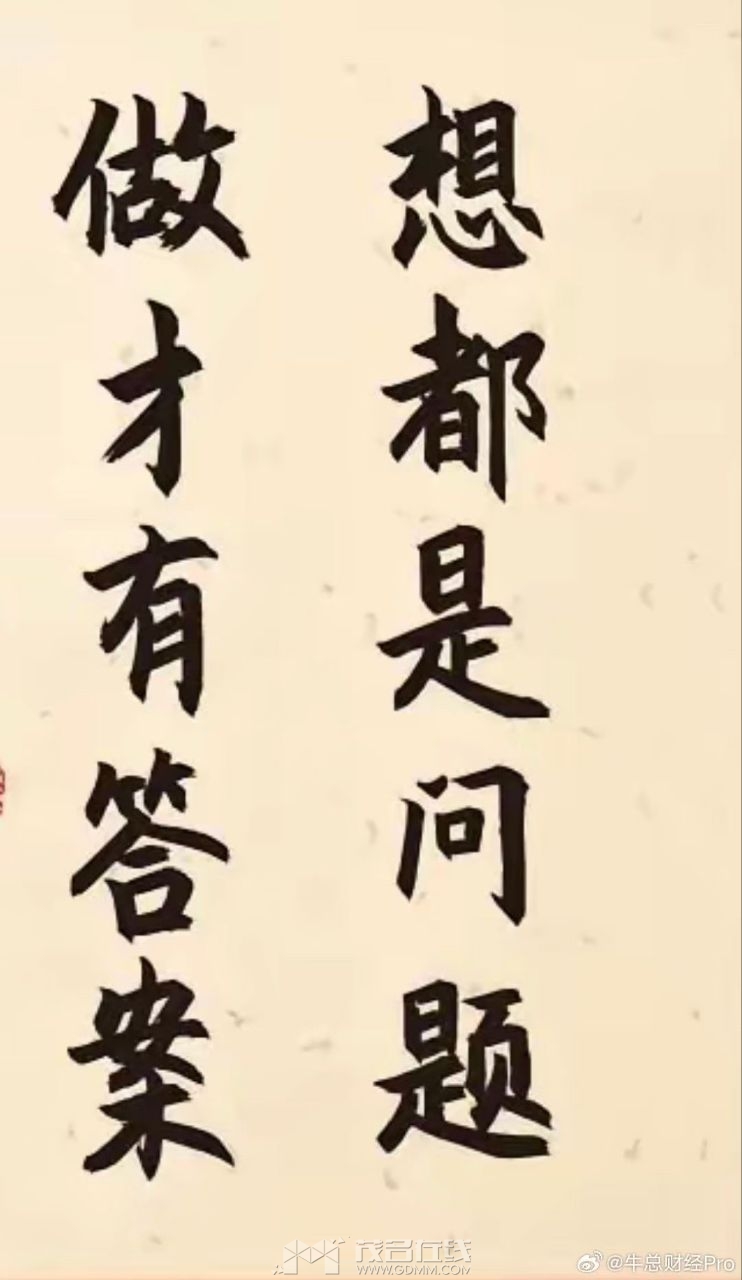 想都是问题
做才有答案
茂名在线
WWW.GDMM.COM
@牛总财经Pro